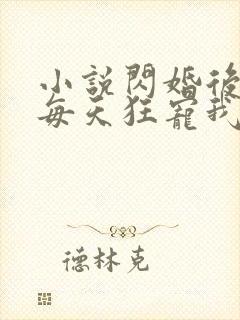 小說閃婚後
每天狂寵我
德林克